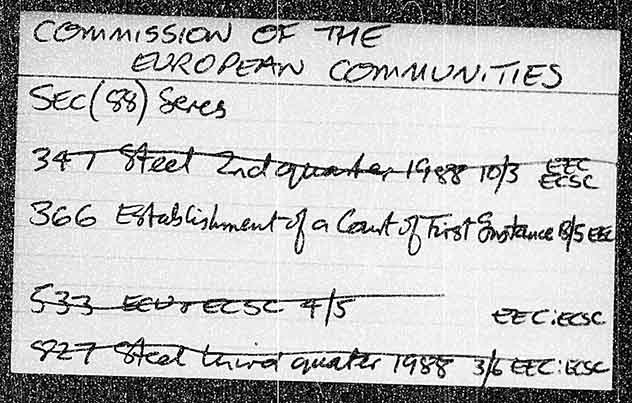 COMMISSION OF THE
EUROPEAN COMMUNITIES
SEC(88) Series
347 Steel 2nd quarter 1988 10/3 EEC
ECSC
366 Establishment of a Court of First Instance 13/5 EEC
533 ECSC 4/5 EEC:ECSC
827 Steel third quarter 1988 3/6 EEC:ECSC